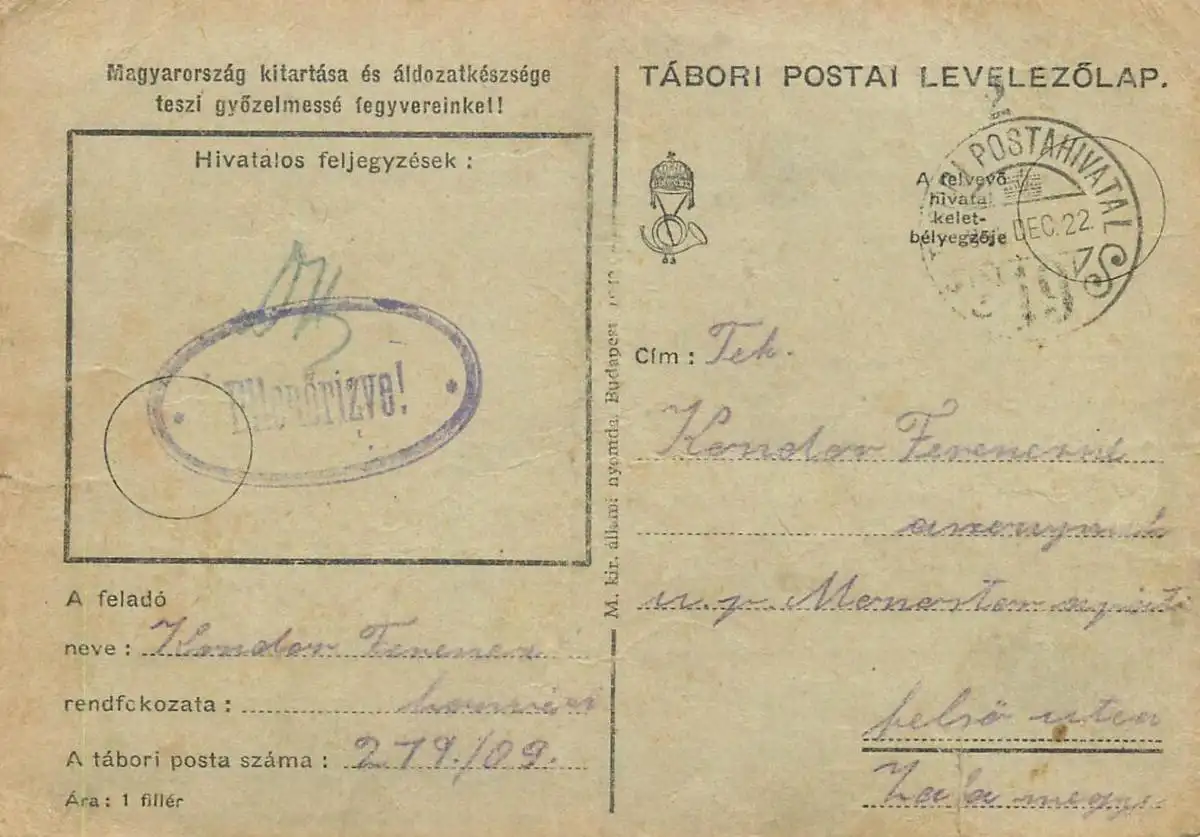 Magyarország kitartása és áldozatkészsége
teszi győzelmessé fegyvereinket!
Hivatalos feljegyzések :
Ellenőrizve!
A feladó
neve : Kondor Ferenc
rendfokozata : honvéd
A tábori posta száma : 219./09.
Ára : 1 fillér
M. kir. állami nyomda, Budapest
TÁBORI POSTAI LEVELEZŐLAP.
A felvevő
hivatal
kelet-
bélyegzője
POSTAHIVATAL
DEC. 22.
Cím : Tek.
Kondor Ferencné
u. p.
felső utca
Zala megye